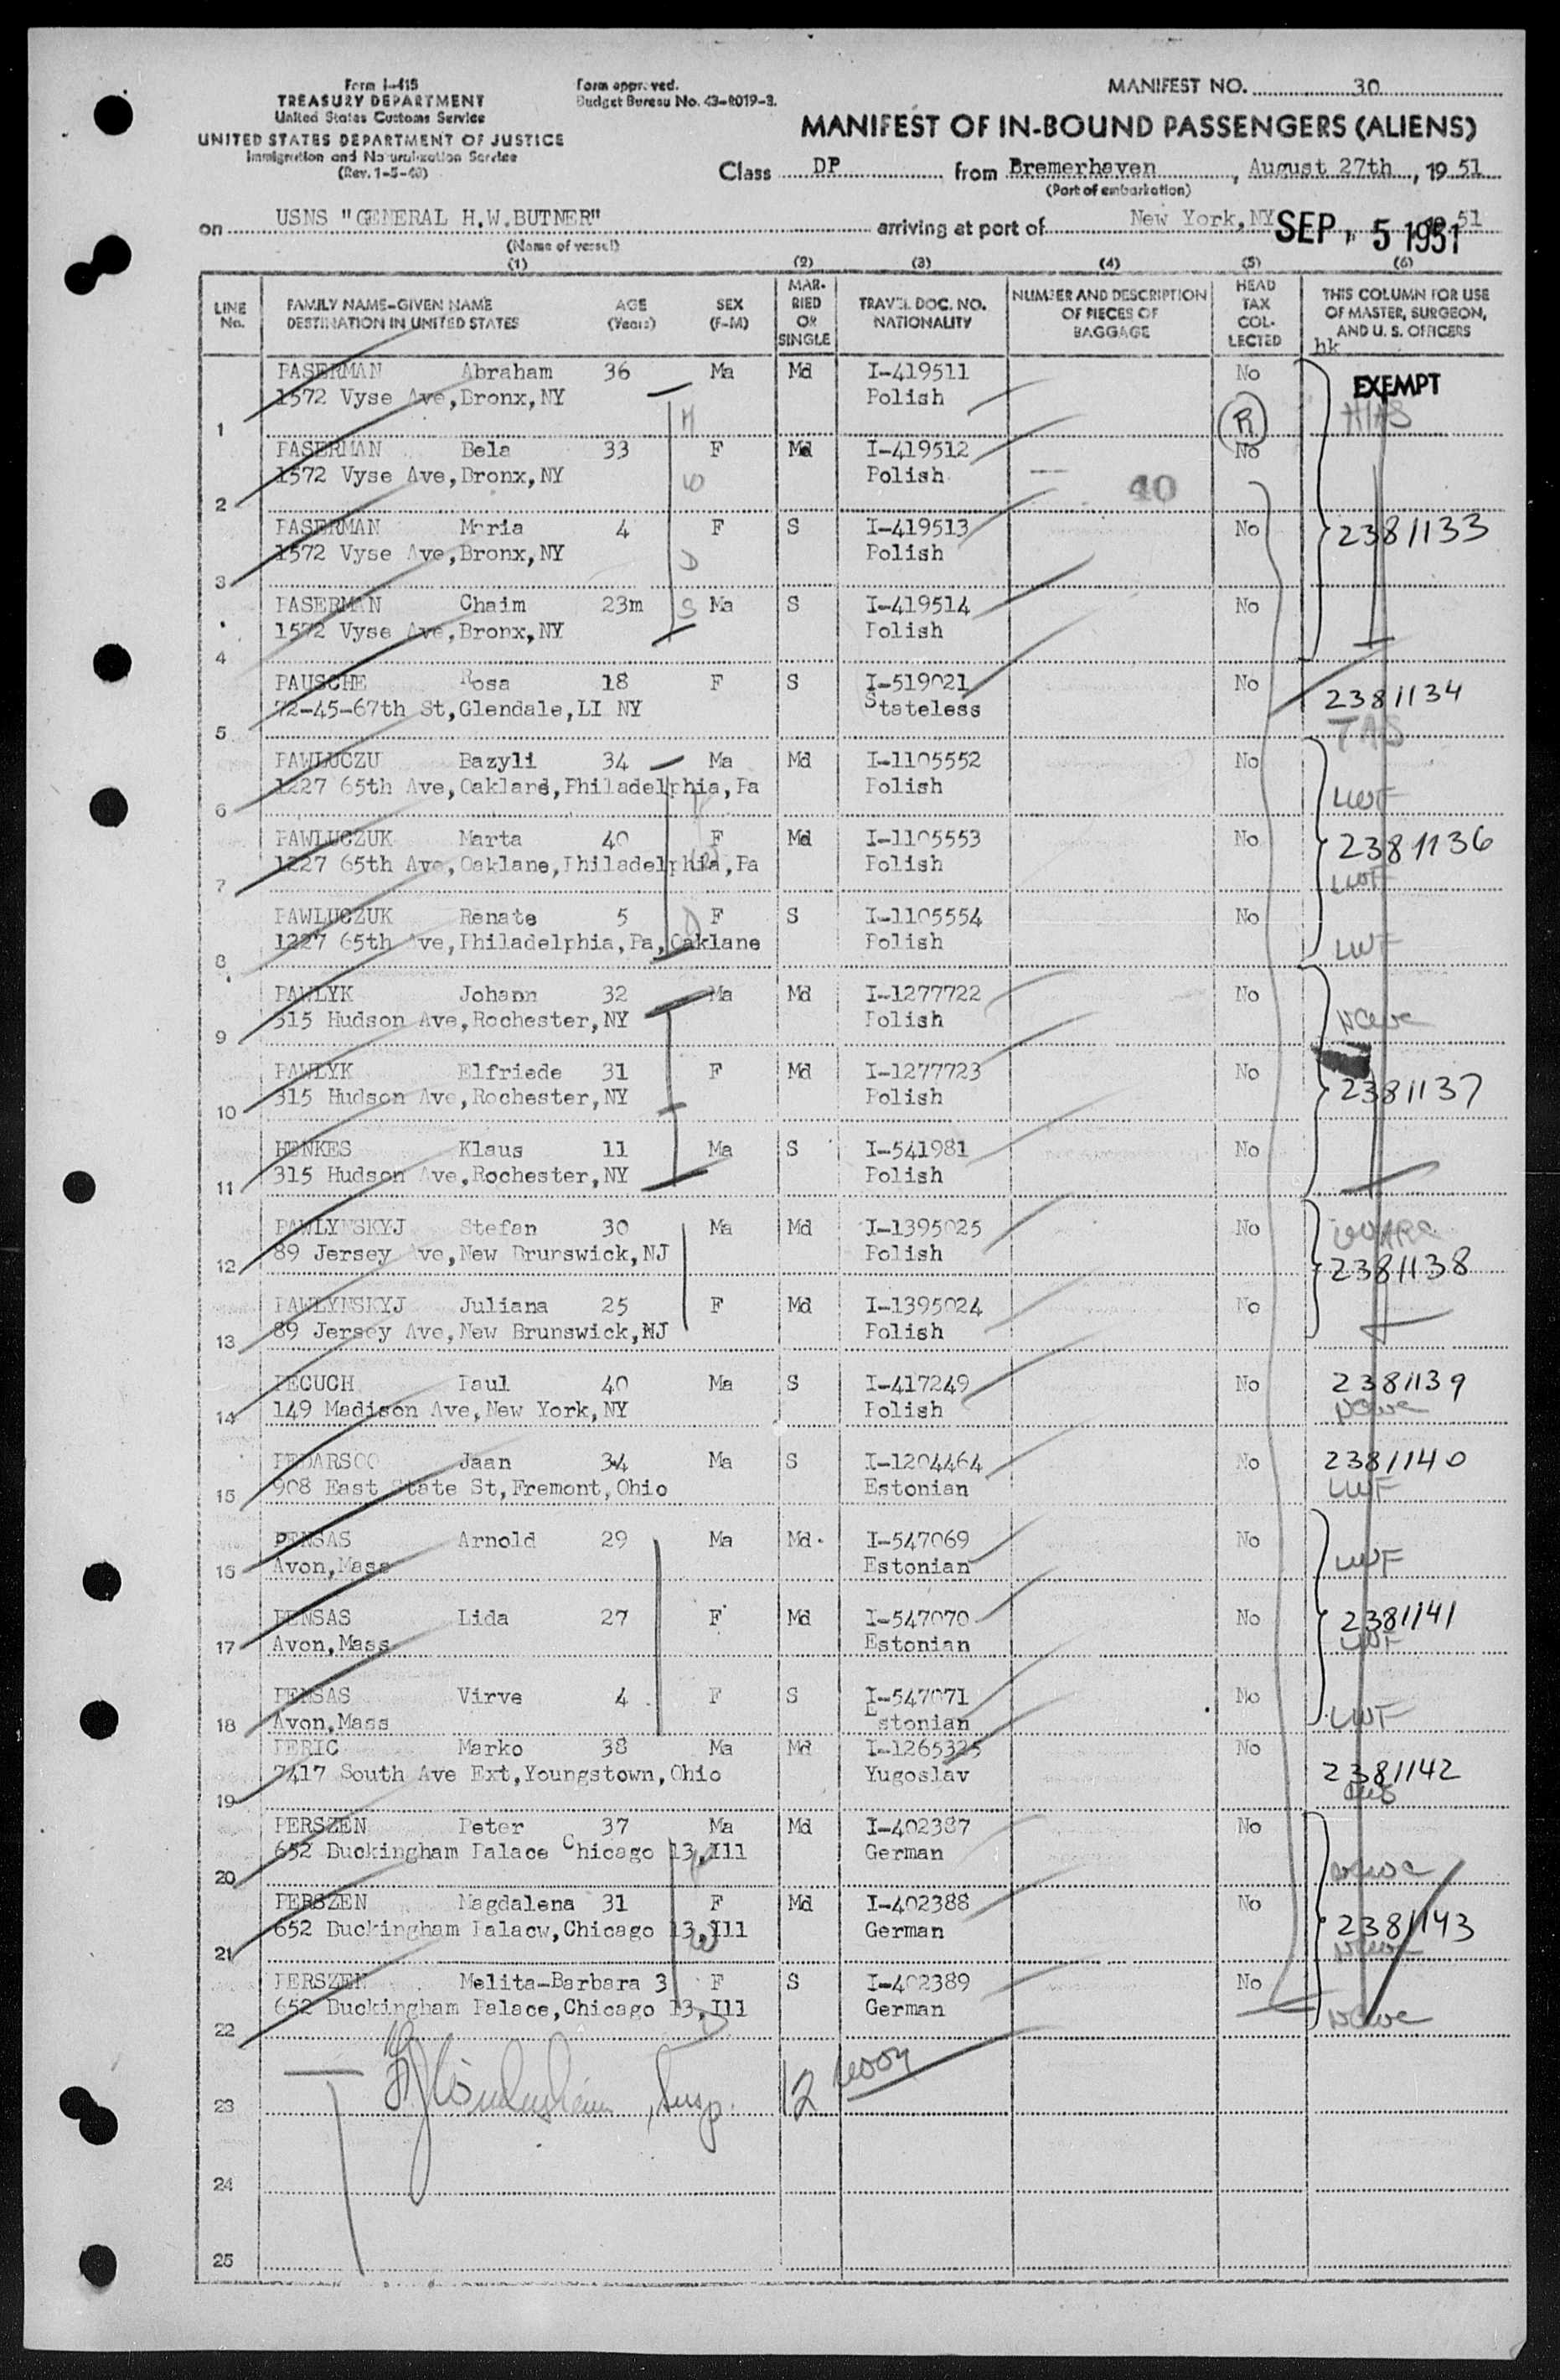 Form I-415
TREASURY DEPARTMENT
United States Customs Service
UNITED STATES DEPARTMENT OF JUSTICE
Immigration and Naturalization Service
(Rev. 1-5-48)
Form approved.
Budget Bureau No. 43-R019-3.
MANIFEST NO. 30
MANIFEST OF IN-BOUND PASSENGERS (ALIENS)
Class DP from Bremerhaven, August 27th, 19 51
(Port of embarkation)
on USNS "GENERAL H.W.BUTNER" arriving at port of New York,NY SEP 5 1951 51
(Name of vessel)
(1) (2) (3) (4) (5) (6)
LINE No. FAMILY NAME-GIVEN NAME DESTINATION IN UNITED STATES AGE (Years) SEX (F-M) MARRIED OR SINGLE TRAVEL DOC. NO. NATIONALITY NUMBER AND DESCRIPTION OF PIECES OF BAGGAGE HEAD TAX COLLECTED THIS COLUMN FOR USE OF MASTER, SURGEON, AND U. S. OFFICERS
hk
PASERMAN Abraham 36 Ma Md I-419511 No EXEMPT
1572 Vyse Ave,Bronx,NY Polish HIAS
1 H R
PASERMAN Bela 33 F Md I-419512 No
1572 Vyse Ave,Bronx,NY Polish 40
2 W
PASERMAN Maria 4 F S I-419513 No 2381133
1572 Vyse Ave,Bronx,NY Polish
3 D
PASERMAN Chaim 23m S Ma S I-419514 No
1572 Vyse Ave,Bronx,NY Polish
4
PAUSCHE Rosa 18 F S I-519021 No 2381134
72-45-67th St,Glendale,LI NY Stateless
5
PAWLUCZU Bazyli 34 Ma Md I-1105552 No
1227 65th Ave,Oaklard,Philadelphia,Pa Polish LWF
6
PAWLUCZUK Marta 40 F Md I-1105553 No 2381136
1227 65th Ave,Oaklane,Philadelphia,Pa Polish LWF
7
PAWLUCZUK Renate 5 F S I-1105554 No
1227 65th Ave,Philadelphia,Pa,Oaklane Polish LWF
8
PAWLYK Johann 32 Ma Md I-1277722 No
315 Hudson Ave,Rochester,NY Polish NCWC
9
PAWLYK Elfriede 31 F Md I-1277723 No 2381137
315 Hudson Ave,Rochester,NY Polish
10
HENKES Klaus 11 Ma S I-541981 No
315 Hudson Ave,Rochester,NY Polish
11
PAWLYNSKYJ Stefan 30 Ma Md I-1395025 No
89 Jersey Ave,New Brunswick,NJ Polish 2381138
12
PAWLYNSKYJ Juliana 25 F Md I-1395024 No
89 Jersey Ave,New Brunswick,NJ Polish
13
PECUCH Paul 40 Ma S I-417249 No 2381139
149 Madison Ave,New York,NY Polish NCWC
14
PEDARSOO Jaan 34 Ma S I-1204464 No 2381140
908 East State St,Fremont,Ohio Estonian LWF
15
PENSAS Arnold 29 Ma Md I-547069 No
Avon,Mass Estonian LWF
16
PENSAS Lida 27 F Md I-547070 No 2381141
Avon,Mass Estonian LWF
17
PENSAS Virve 4 F S I-547071 No
Avon,Mass Estonian LWF
18
PERIC Marko 38 Ma Md I-1265325 No
7417 South Ave Ext,Youngstown,Ohio Yugoslav 2381142
19
PERSZEN Peter 37 Ma Md I-402387 No
652 Buckingham Palace Chicago 13,Ill German NCWC
20
PERSZEN Magdalena 31 F Md I-402388 No 2381143
652 Buckingham Palacw,Chicago 13,Ill German NCWC
21
PERSZEN Melita-Barbara 3 F S I-402389 No
652 Buckingham Palace,Chicago 13,Ill German NCWC
22
23
24
25